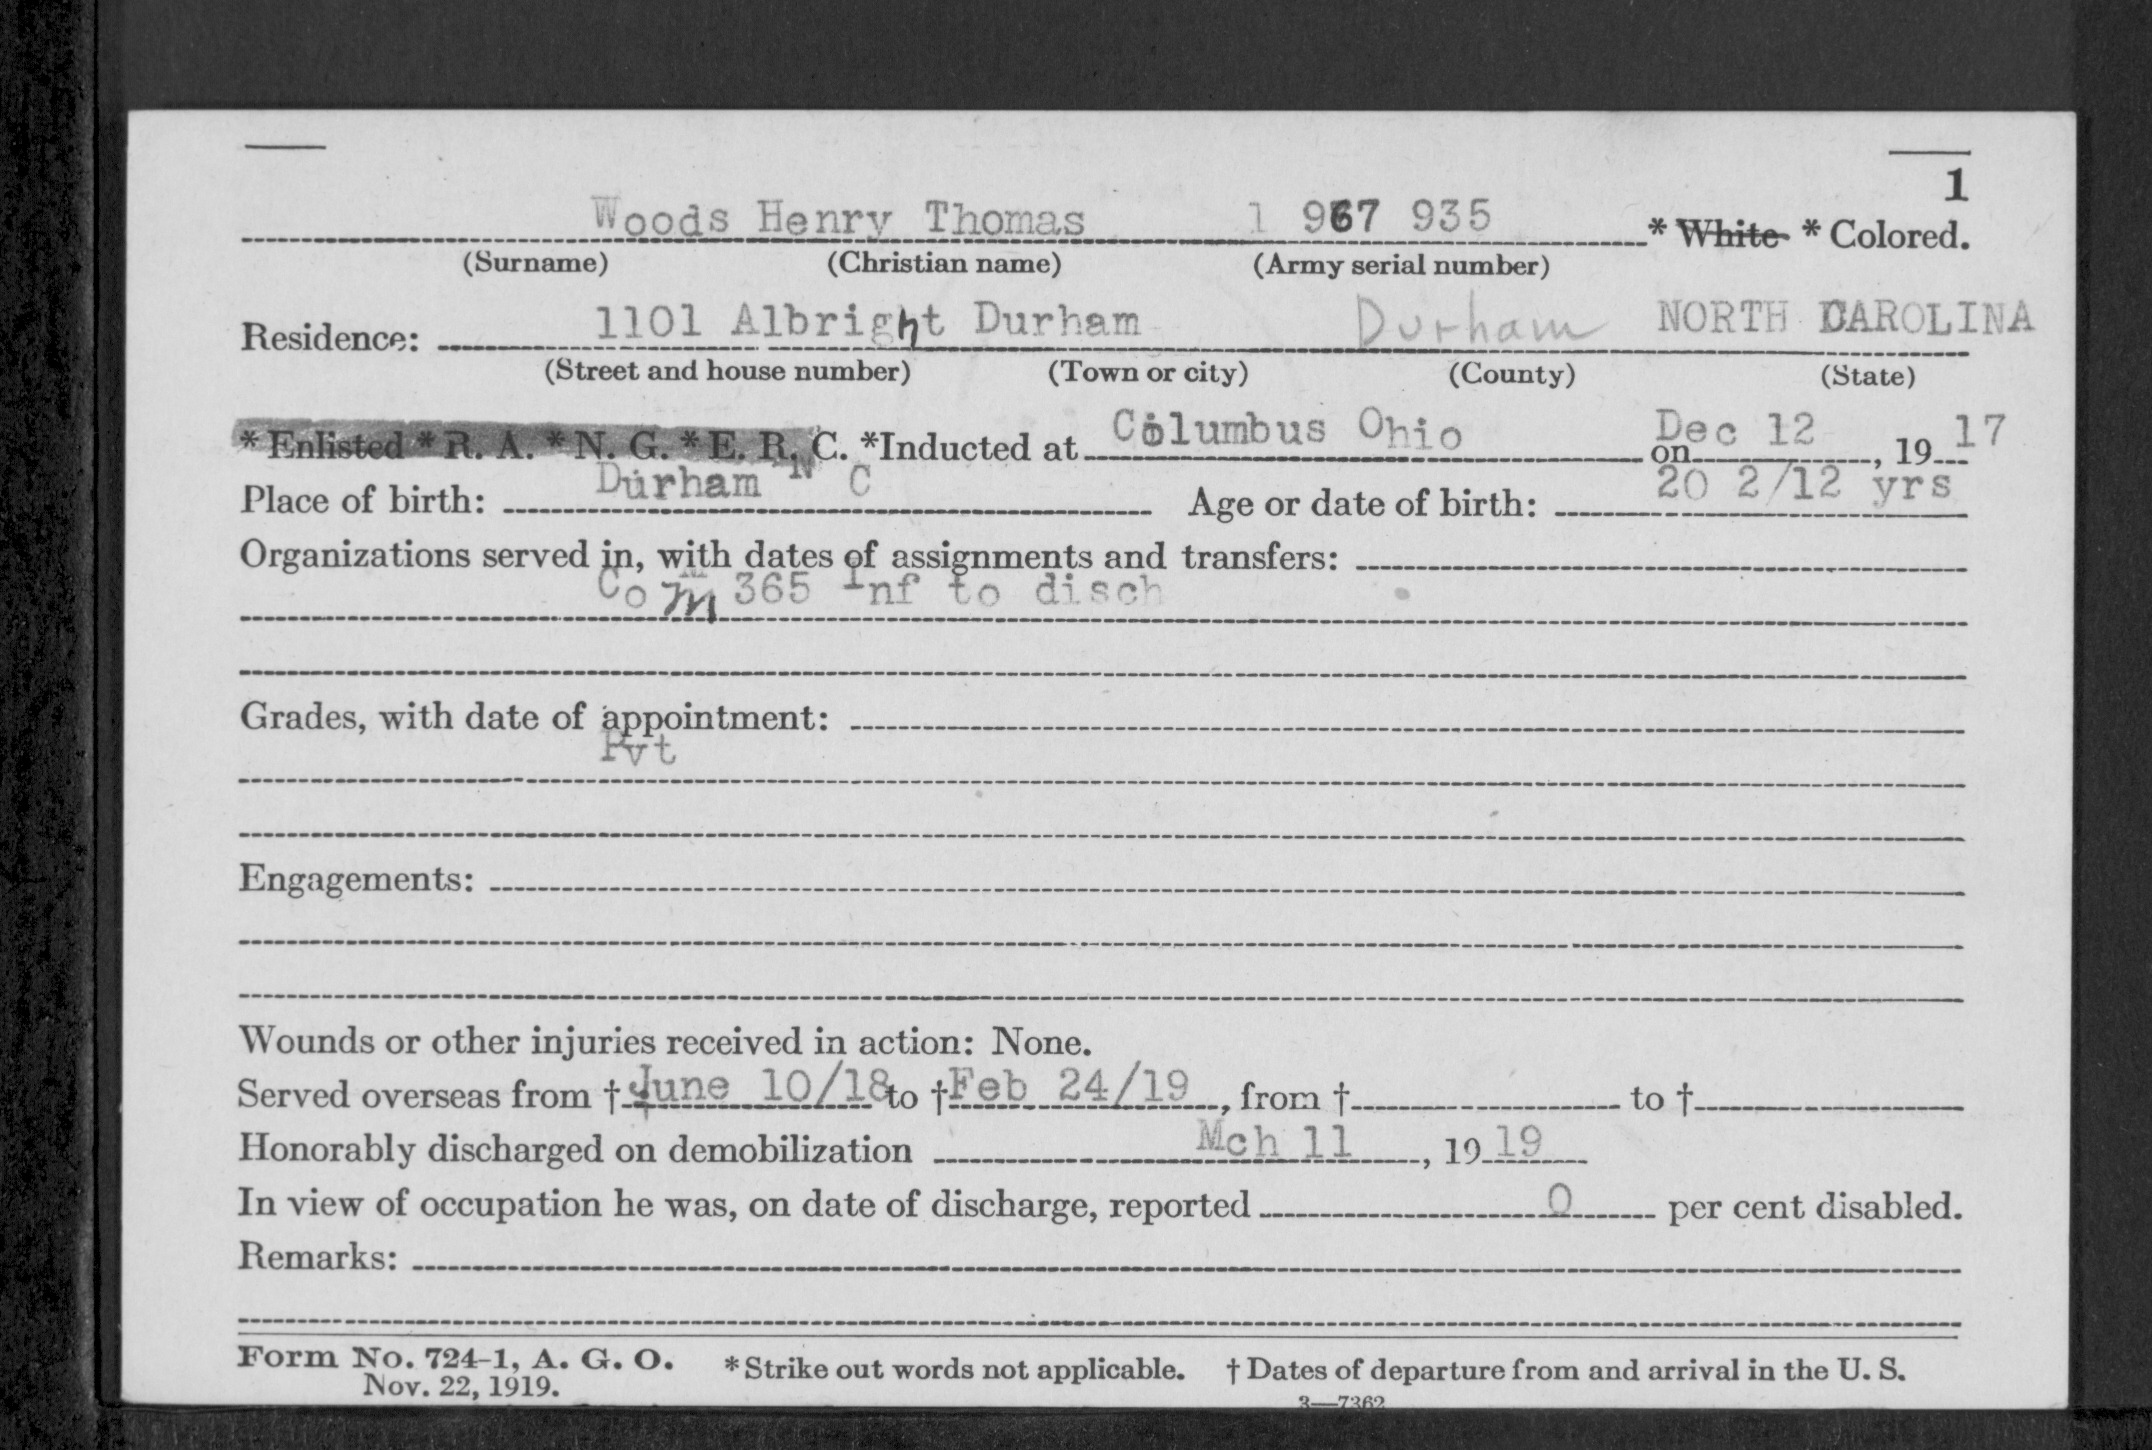 1
Woods Henry Thomas 1 967 935 * White * Colored.
(Surname) (Christian name) (Army serial number)
Residence: 1101 Albright Durham Durham NORTH CAROLINA
(Street and house number) (Town or city) (County) (State)
* Enlisted * R. A. * N. G. * E. R. C. *Inducted at Columbus Ohio on Dec 12, 19 17
Place of birth: Durham N C Age or date of birth: 20 2/12 yrs
Organizations served in, with dates of assignments and transfers:
Co M 365 Inf to disch
Grades, with date of appointment:
Pvt
Engagements:
Wounds or other injuries received in action: None.
Served overseas from † June 10/18 to † Feb 24/19, from † to †
Honorably discharged on demobilization Mch 11, 19 19
In view of occupation he was, on date of discharge, reported 0 per cent disabled.
Remarks:
Form No. 724-1, A. G. O. * Strike out words not applicable. † Dates of departure from and arrival in the U. S.
Nov. 22, 1919.
3—7362